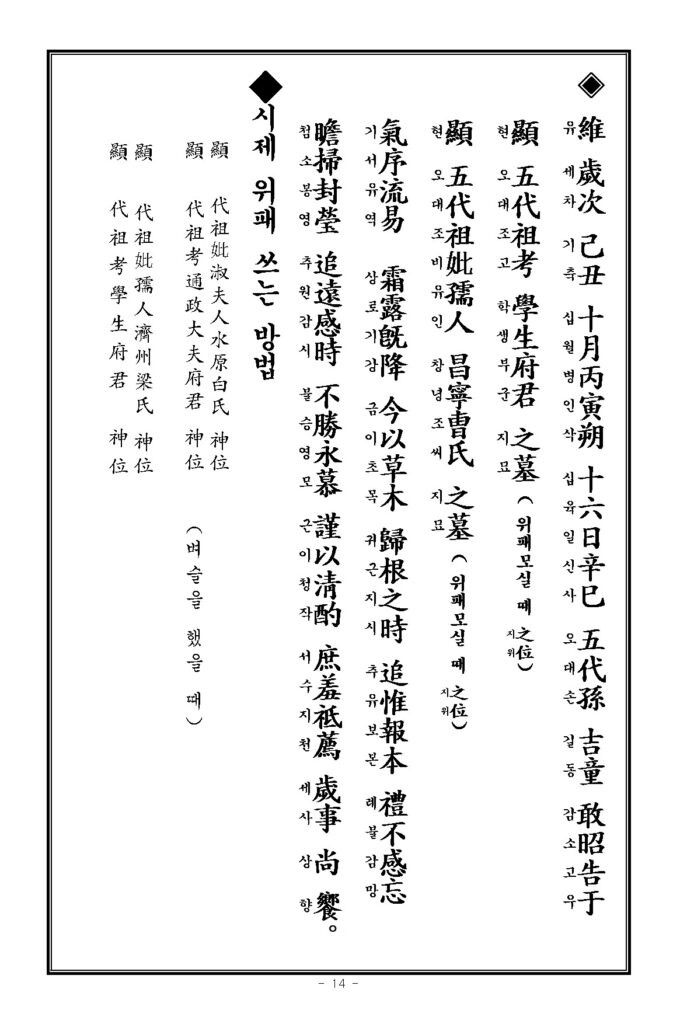 ◈ 維 歲次 己丑 十月丙寅朔 十六日辛巳 五代孫 吉童 敢昭告于
유 세차 기축 십월병인삭 십육일신사 오대손 길동 감소고우
顯 五代祖考 學生府君 之墓 (위패모실 때 之位)
현 오대조고 학생부군 지묘 지위
顯 五代祖妣孺人 昌寧曺氏 之墓 (위패모실 때 之位)
현 오대조비유인 창녕조씨 지묘 지위
氣序流易 霜露旣降 今以草木 歸根之時 追惟報本 禮不感忘
기서유역 상로기강 금이초목 귀근지시 추유보본 례불감망
瞻掃封瑩 追遠感時 不勝永慕 謹以淸酌 庶羞祗薦 歲事 尙 饗。
첨소봉영 추원감시 불승영모 근이청작 서수지천 세사 상 향
◆시제 위패 쓰는 방법
顯 代祖妣淑夫人水原白氏 神位
顯 代祖考通政大夫府君 神位 (벼슬을 했을 때)
顯 代祖妣孺人濟州梁氏 神位
顯 代祖考學生府君 神位
- 14 -